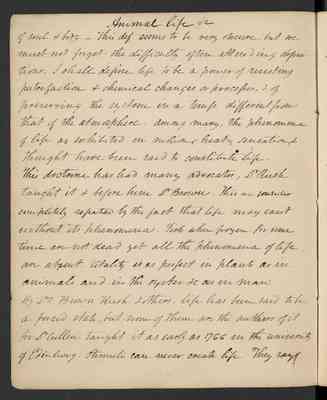 Animal life &c
of soul & body – This def seems to be very obscure but we
must not forget the difficulty often attending defini
tions. I shall define life to be a power of resisting
putrefaction & chemical changes or processes, & of
preserving the system in a temp different from
that of the atmosphere. Among many, the phenomena
of life as exhibited in motion, heat, sensation &
thought have been said to constitute life.
This doctrine has had many advocates, Dr Rush
taught it & before him Dr Brown. This is
completely refuted by the fact that life may exist
without its phenomena. Toads when frozen for some
time are not dead yet all the phenomena of life
are absent. Vitality is as perfect in plants as in
animals and in the oyster &c as in man
By Drs Brown Rush & others, life has been said to be
a forced state, but none of them are the authors of it
for Dr Cullen taught it as early as 1766 in the university
of Edinburg. Stimuli can never create life. They may